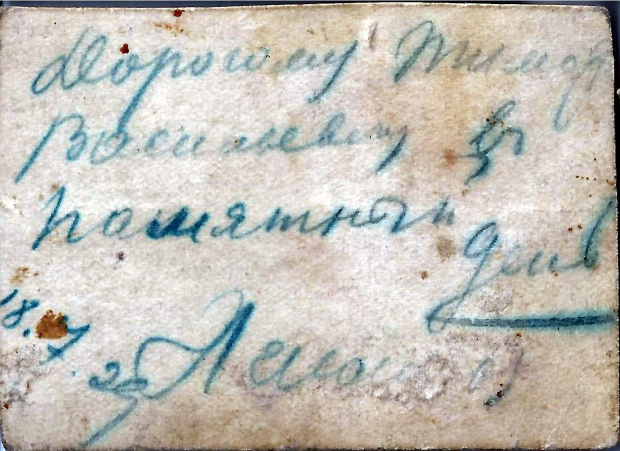 Дорогому Тимоф
Васильевичу в
памятный
день
18.7.25